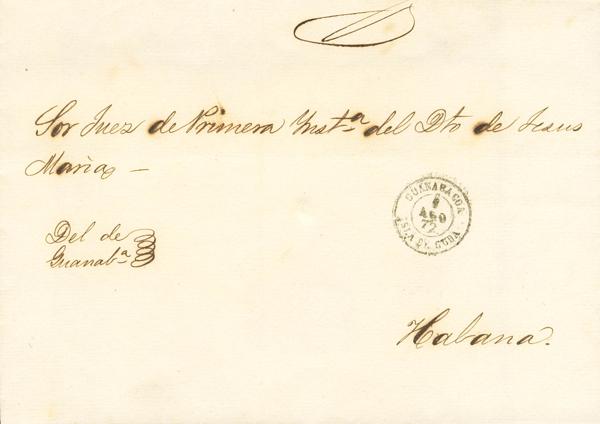 Sor Juez de Primera Ynst.a del Dto de Jesus
Maria –
GUANABACOA
AGO
72
ISLA DE CUBA
Del de
Guanab.a
Habana.